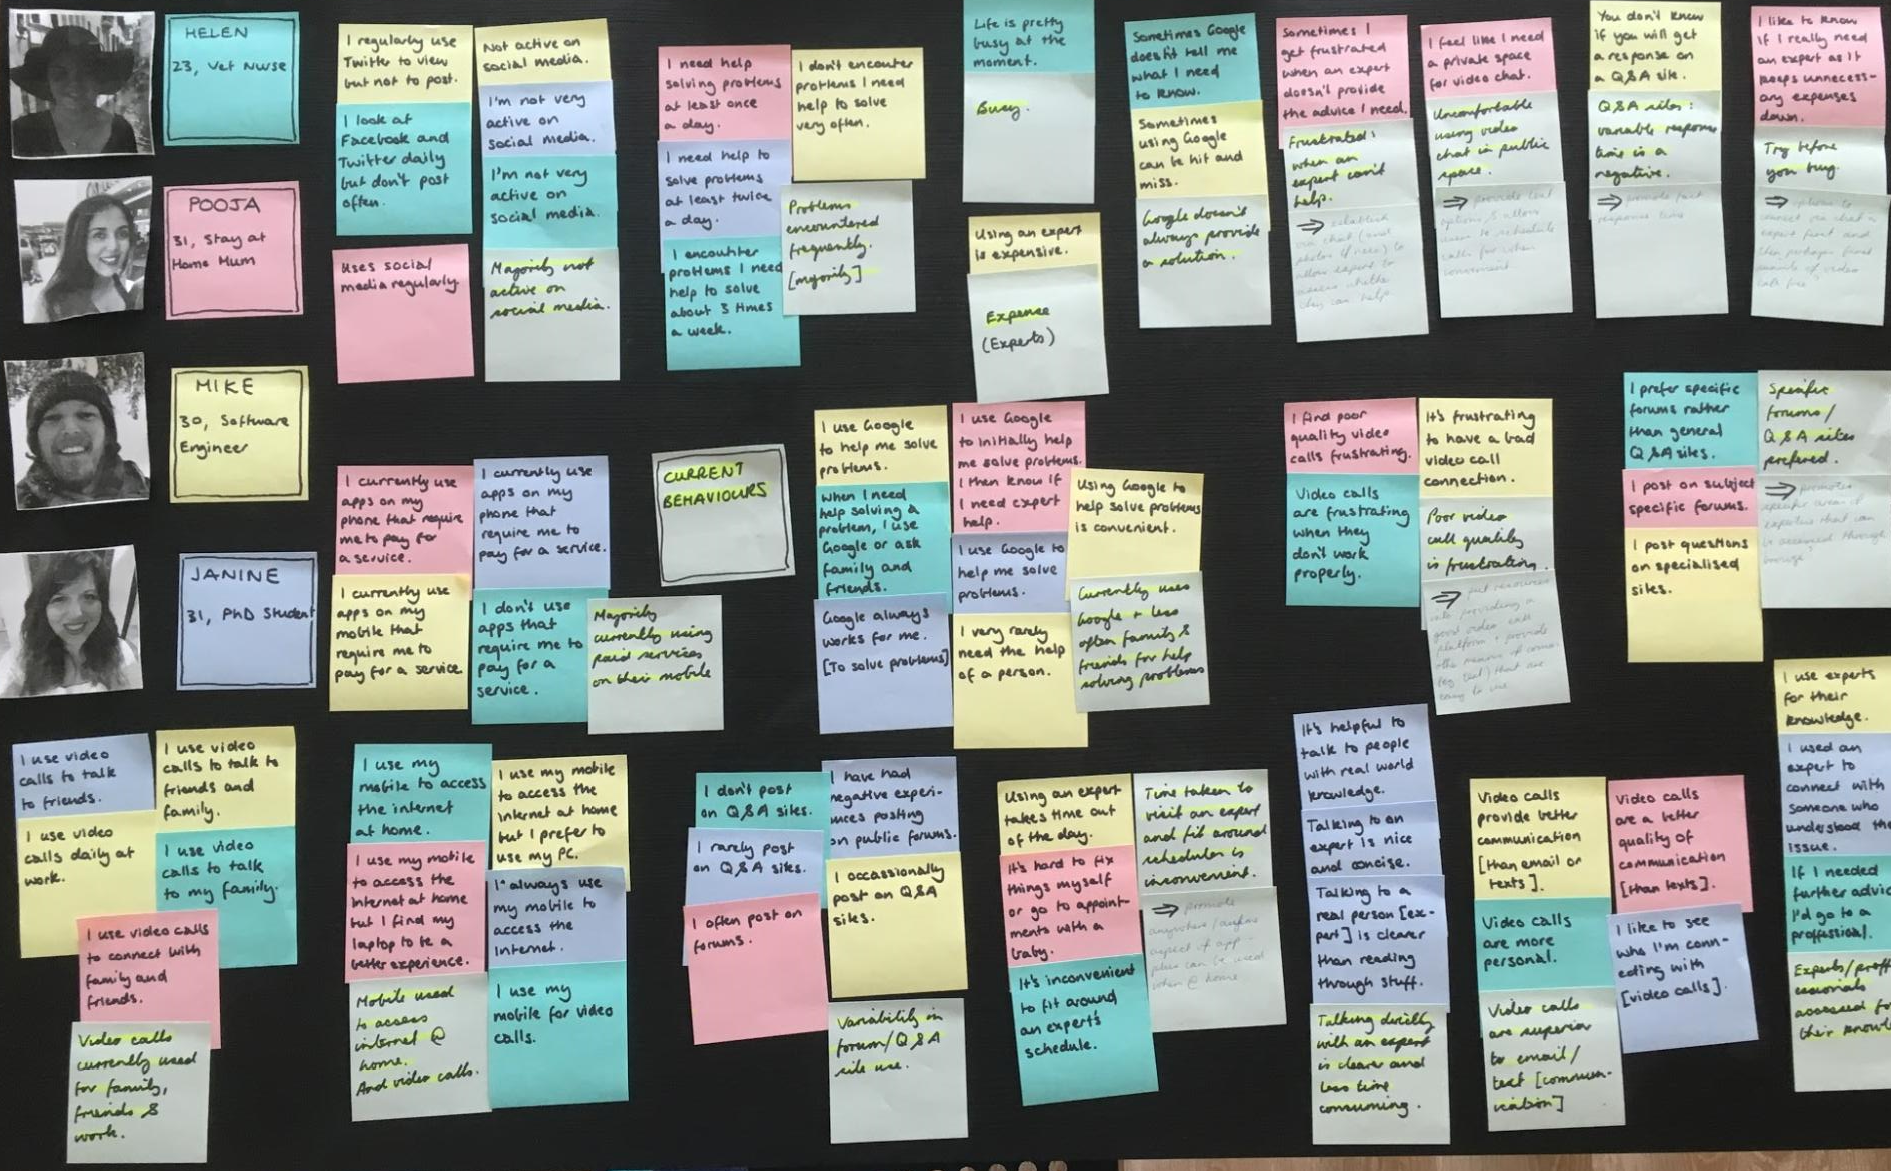 HELEN
23, Vet Nurse
POOJA
31, Stay at
Home Mum
MIKE
30, Software
Engineer
JANINE
31, PhD Student
I regularly use
Twitter to view
but not to post.
I look at
Facebook and
Twitter daily
but don't post
often.
Uses social
media regularly.
Not active on
social media.
I'm not very
active on
social media.
I'm not very
active on
social media.
Majority not
active on
social media.
I need help
solving problems
at least once
a day.
I need help to
solve problems
at least twice
a day.
I encounter
problems I need
help to solve
about 3 times
a week.
I don't encounter
problems I need
help to solve
very often.
Problems
encountered
frequently.
[majority]
Life is pretty
busy at the
moment.
Busy.
Using an expert
is expensive.
Expense
(Experts)
Sometimes Google
doesn't tell me
what I need
to know.
Sometimes
using Google
can be hit and
miss.
Google doesn't
always provide
a solution.
Sometimes I
get frustrated
when an expert
doesn't provide
the advice I need.
Frustrated:
when an
expert can't
help.
I feel like I need
a private space
for video chat.
Uncomfortable
using video
chat in public
space.
You don't know
if you will get
a response on
a Q&A site.
Q&A sites:
variable response
time is a
negative.
⇒ promote fast
response time
I like to know
if I really need
an expert as it
keeps unnecess-
ary expenses
down.
Try before
you buy.
I currently use
apps on my
phone that require
me to pay for
a service.
I currently use
apps on my
mobile that
require me to
pay for a service.
I currently use
apps on my
phone that
require me to
pay for a service.
I don't use
apps that
require me to
pay for a
service.
Majority
currently using
paid services
on their mobile
CURRENT
BEHAVIOURS
I use Google
to help me solve
problems.
When I need
help solving a
problem, I use
Google or ask
family and
friends.
Google always
works for me.
[To solve problems]
I use Google
to initially help
me solve problems.
I then know if
I need expert
help.
I use Google to
help me solve
problems.
I very rarely
need the help
of a person.
Using Google to
help solve problems
is convenient.
Currently uses
Google + less
often family &
friends for help
solving problems
I find poor
quality video
calls frustrating.
Video calls
are frustrating
when they
don't work
properly.
It's frustrating
to have a bad
video call
connection.
Poor video
call quality
is frustrating.
I prefer specific
forums rather
than general
Q&A sites.
I post on subject
specific forums.
I post questions
on specialised
sites.
Specific
forums/
Q&A sites
prefered.
I use video
calls to talk
to friends.
I use video
calls daily at
work.
I use video
calls to talk to
friends and
family.
I use video
calls to talk
to my family.
I use video calls
to connect with
family and
friends.
Video calls
currently used
for family,
friends &
work.
I use my
mobile to access
the internet
at home.
I use my mobile
to access the
internet at home
but I find my
laptop to be a
better experience.
Mobile used
to access
internet @
home.
And video calls.
I use my mobile
to access the
internet at home
but I prefer to
use my PC.
I always use
my mobile to
access the
internet.
I use my
mobile for video
calls.
I don't post
on Q&A sites.
I rarely post
on Q&A sites.
I often post on
forums.
I have had
negative experi-
ences posting
on public forums.
I occassionally
post on Q&A
sites.
Variability in
forum/Q&A
site use.
Using an expert
takes time out
of the day.
It's hard to fix
things myself
or go to appoint-
ments with a
baby.
It's inconvenient
to fit around
an expert's
schedule.
Time taken to
visit an expert
and fit around
schedules is
inconvenient.
It's helpful to
talk to people
with real world
knowledge.
Talking to an
expert is nice
and concise.
Talking to a
real person [ex-
pert] is clearer
than reading
through stuff.
Talking directly
with an expert
is clearer and
less time
consuming.
Video calls
provide better
communication
[than email or
texts].
Video calls
are more
personal.
Video calls
are superior
to email/
text [commun-
ication]
Video calls
are a better
quality of
communication
[than texts].
I like to see
who I'm conn-
ecting with
[video calls].
I use experts
for their
knowledge.
I used an
expert to
connect with
someone who
understood the
issue.
If I needed
further advic
I'd go to a
proffessional.
Experts/proff
essionals
accessed for
their knowl